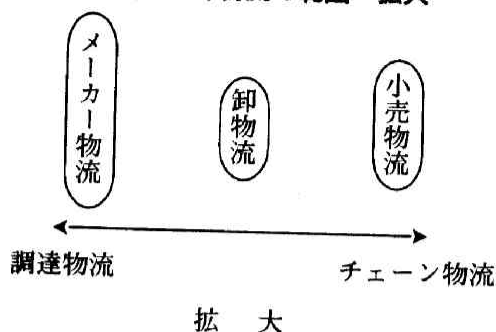 メーカー物流
卸物流
小売物流
調達物流
チェーン物流
拡 大